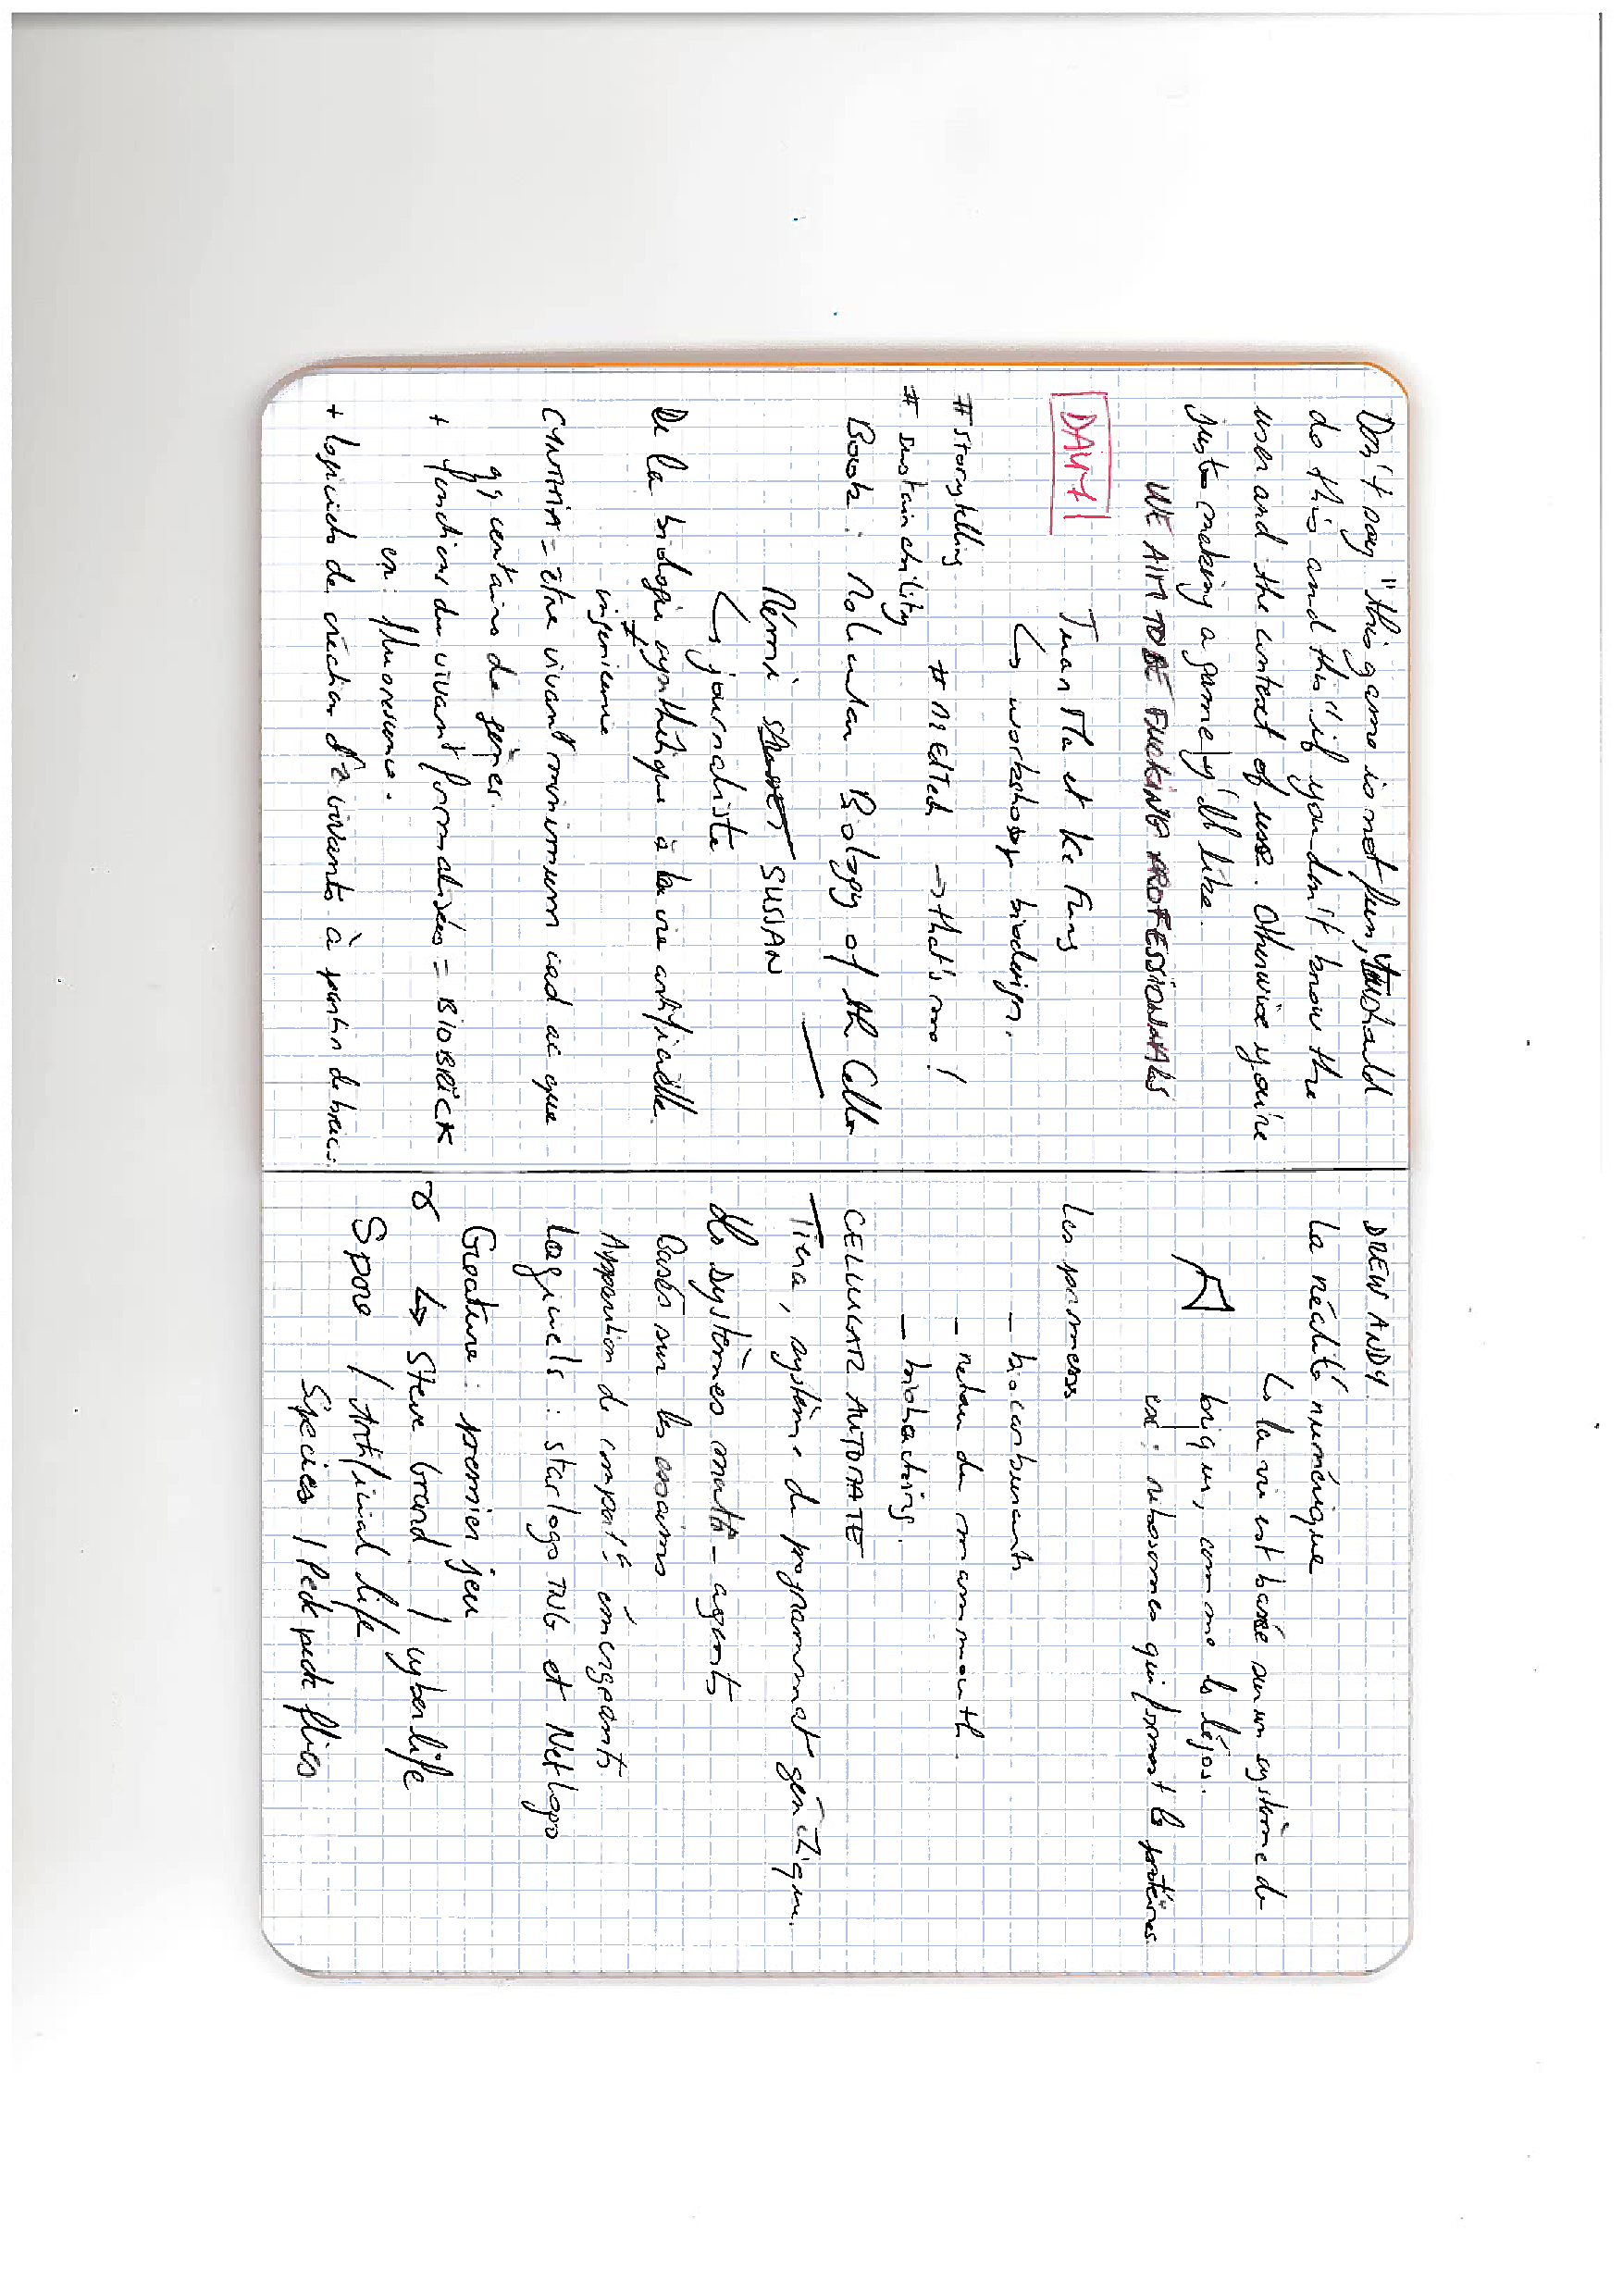 Don't say "this game is not fun, should
do this and this" if you don't know the
user and the context of use. Otherwise you're
juste making a game y'll like.
WE AIM TO BE FUCKING PROFESSIONALS
DAY 1
Juan Ma et Ke Fung
↳ workshop biodesign.
#storytelling
# MEdTech → that's me !
# sustainability
Book : Molecular Biology of th Cells
Rémi SUSSAN
↳ journaliste
De la biologie synthétique à la vie artificielle
≠
ingénierie
CYNTHIA = être vivant minimum cad ac que
qq centaine de gènes.
+ fonctions du vivant formalisées = BIOBRICK
ex: fluorescence.
+ logiciels de création d'ê vivants à partir de
DREW ANDY.
La réalité numérique
↳ la vie est basée sur un système de
briques, comme les légos.
ex : ribosomes qui forment les protéines.
Les promesses
- biocarburants
- retour du mammouth.
- biohacking.
CELLULAR AUTOMATE
Tierra, système de programmat° génétique.
Les systèmes multi-agents
Basés sur les essaims
Apparition de comport^ts émergeants.
Logiciels : starlogo TNG et Netlogo
Creature : premier jeu
↳ Steve Grand / cyberlife
Spore / Artificial life
Species / Pick pick flies